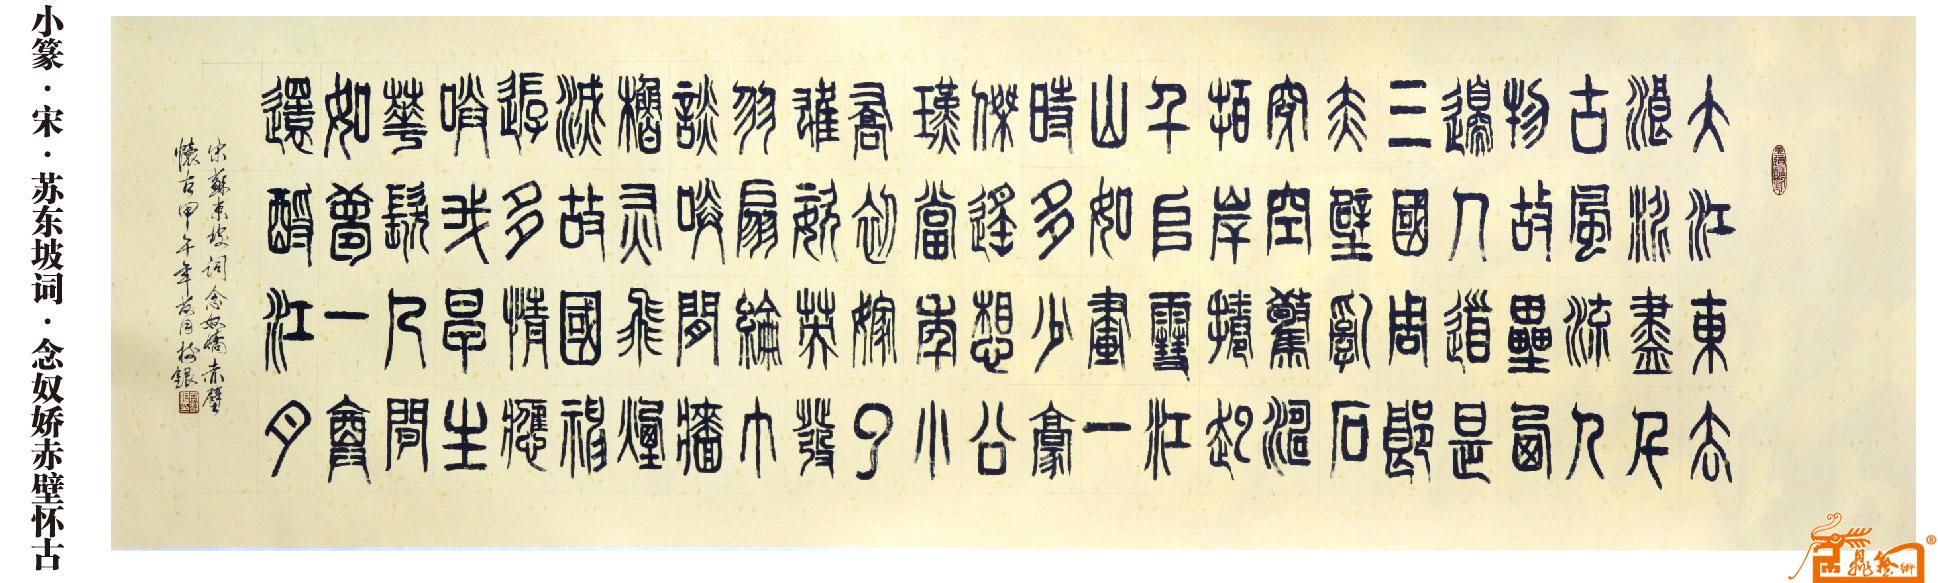 小篆·宋·苏东坡词·念奴娇赤壁怀古
大江東去
浪淘盡千
古風流人
物故壘西
邊人道是
三國周郎
赤壁亂石
穿空驚濤
拍岸捲起
千堆雪江
山如畫一
時多少豪
傑遙想公
瑾當年小
喬初嫁了
雄姿英發
羽扇綸巾
談笑間檣
櫓灰飛煙
滅故國神
遊多情應
笑我早生
華髮人間
如夢一尊
還酹江月
宋蘇東坡詞念奴嬌赤壁
懷古甲午年